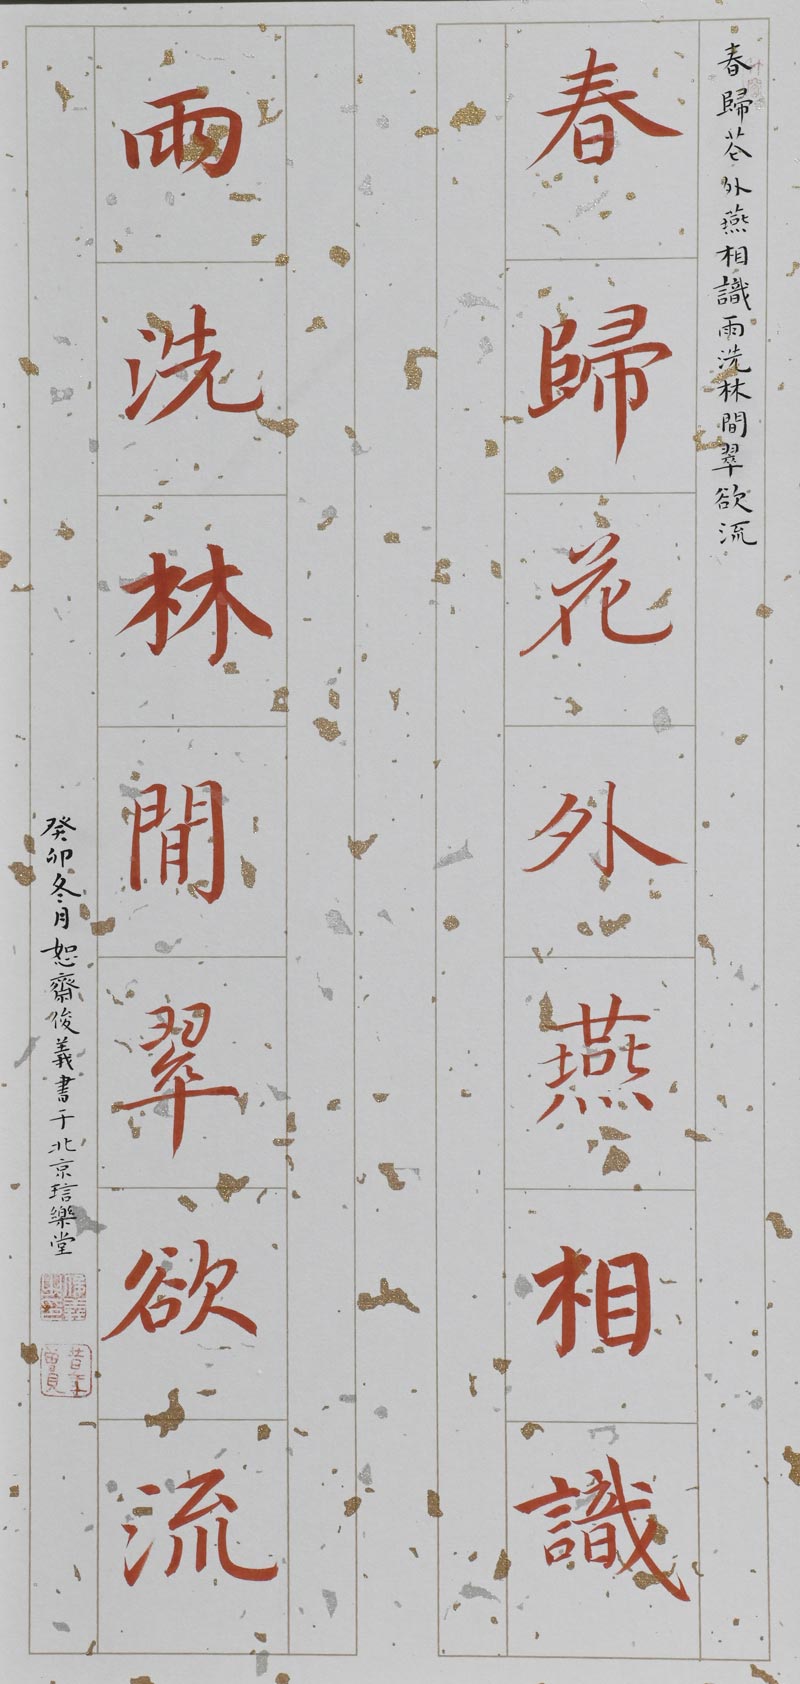 春歸花外燕相識雨洗林間翠欲流
春歸花外燕相識
雨洗林間翠欲流
癸卯冬月恕齋俊義書于北京琂樂堂